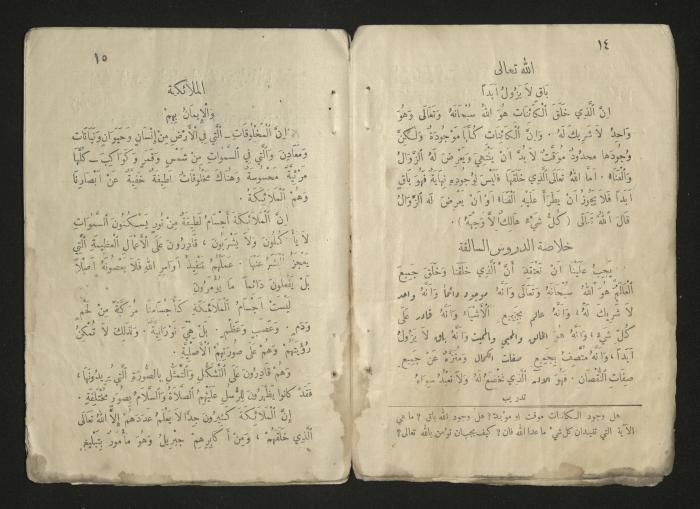 ١٤
الله تعالى
بَاقٍ لَا يَزُولُ اَبَداً
اِنَّ الَّذِي خَلَقَ الْكَائِنَاتِ هُوَ اللهُ سُبْحَانَهُ وَتَعَالَى وَهُوَ
وَاحِدٌ لَا شَرِيكَ لَهُ . وَاِنَّ الْكَائِنَاتِ كُلَّهَا مَوْجُودَةٌ وَلَكِنَّ
وُجُودَهَا مَحْدُودٌ مُوَقَّتٌ لَا بُدَّ اَنْ يَنْتَهِيَ وَيَعْرِضَ لَهُ الزَّوَالُ
وَالْفَنَاءُ . اَمَّا اللهُ تَعَالَى الَّذِي خَلَقَهَا فَلَيْسَ لِوُجُودِهِ نِهَايَةٌ فَهُوَ بَاقٍ
اَبَداً فَلَا يَجُوزُ اَنْ يَطْرَأَ عَلَيْهِ الْفَنَاءُ اَوْ اَنْ يَعْرِضَ لَهُ الزَّوَالُ
قَالَ اللهُ تَعَالَى ( كُلُّ شَيْءٍ هَالِكٌ اِلَّا وَجْهَهُ ) .
خلاصة الدروس السالفة
يَجِبُ عَلَيْنَا اَنْ نَعْتَقِدَ اَنَّ الَّذِي خَلَقَنَا وَخَلَقَ جَمِيعَ
الْعَالَمِ هُوَ اللهُ سُبْحَانَهُ وَتَعَالَى وَاَنَّهُ موجود دائماً وَاَنَّهُ واحد
لَا شَرِيكَ لَهُ ، وَاَنَّهُ عالم بِجَمِيعِ الْاَشْيَاءِ وَاَنَّهُ قادر عَلَى
كُلِّ شَيْءٍ ، وَاَنَّهُ هُوَ الخالق والمحيي والمميت وَاَنَّهُ باق لَا يَزُولُ
اَبَداً ، وَاَنَّهُ مُتَّصِفٌ بِجَمِيعِ صفات الكمال وَمُنَزَّهٌ عَنْ جَمِيعِ
صِفَاتِ النُّقْصَانِ . فَهُوَ الاله الَّذِي نَخْضَعُ لَهُ وَلَا نَعْبُدُ سِوَاهُ
تدريب
هل وجود الكائنات موقت او مؤبد؟ هل وجود الله باق ؟ ما هي
الآية التي تفيدان كل شيء ما عدا الله فان ؟ كيف يجب ان نؤمن بالله تعالى؟
١٥
الملائكة
وَالْاِيمَانُ بِهِمْ
اِنَّ الْمَخْلُوقَاتِ ـ الَّتِي فِي الْاَرْضِ مِنْ اِنْسَانٍ وَحَيَوَانٍ وَنَبَاتَاتٍ
وَمَعَادِنَ وَالَّتِي فِي السَّمَوَاتِ مِنْ شَمْسٍ وَقَمَرٍ وَكَوَاكِبَ ـ كُلُّهَا
مَرْئِيَّةٌ مَحْسُوسَةٌ وَهُنَاكَ مَخْلُوقَاتٌ لَطِيفَةٌ خَفِيَّةٌ عَنْ اَبْصَارِنَا
وَهُمُ الْمَلَائِكَةُ .
اِنَّ الْمَلَائِكَةَ اَجْسَامٌ لَطِيفَةٌ مِنْ نُورٍ يَسْكُنُونَ السَّمَوَاتِ
لَا يَأْكُلُونَ وَلَا يَشْرَبُونَ ، قَادِرُونَ عَلَى الْاَعْمَالِ الْعَظِيمَةِ الَّتِي
يَعْجِزُ الْبَشَرُ عَنْهَا . عَمَلُهُمْ تَنْفِيذُ اَوَامِرِ اللهِ فَلَا يَعْصُونَهُ اَصْلًا
بَلْ يَفْعَلُونَ دَائِماً مَا يُؤْمَرُونَ
لَيْسَتْ اَجْسَامُ الْمَلَائِكَةِ كَاَجْسَامِنَا مُرَكَّبَةً مِنْ لَحْمٍ
وَدَمٍ . وَعَصَبٍ وَعَظْمٍ . بَلْ هِيَ نُورَانِيَّةٌ . وَلِذَلِكَ لَا تُمْكِنُ
رُؤْيَتُهُمْ وَهُمْ عَلَى صُورَتِهِمُ الْاَصْلِيَّةِ .
وَهُمْ قَادِرُونَ عَلَى التَّشَكُّلِ وَالتَّمَثُّلِ بِالصُّورَةِ الَّتِي يُرِيدُونَهَا ،
فَقَدْ كَانُوا يَظْهَرُونَ لِلرُّسُلِ عَلَيْهِمُ الصَّلَاةُ وَالسَّلَامُ بِصُوَرٍ مُخْتَلِفَةٍ .
اِنَّ الْمَلَائِكَةَ كَثِيرُونَ جِدًّا لَا يَعْلَمُ عَدَدَهُمْ اِلَّا اللهُ تَعَالَى
الَّذِي خَلَقَهُمْ ، وَمِنْ اَكَابِرِهِمْ جِبْرِيلُ وَهُوَ مَأْمُورٌ بِتَبْلِيغِ